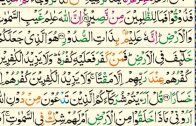 فَذُوْقُوْا فَمَا لِلظّٰلِمِيْنَ مِنْ نَّصِيْرٍ اِنَّ اللّٰهَ عٰلِمُ غَيْبِ السَّمٰوٰتِ
وَالْاَرْضِ اِنَّهٗ عَلِيْمٌۢ بِذَاتِ الصُّدُوْرِ هُوَ الَّذِيْ جَعَلَكُمْ
خَلٰٓئِفَ فِي الْاَرْضِ فَمَنْ كَفَرَ فَعَلَيْهِ كُفْرُهٗ وَلَا يَزِيْدُ الْكٰفِرِيْنَ
كُفْرُهُمْ عِنْدَ رَبِّهِمْ اِلَّا مَقْتًا وَلَا يَزِيْدُ الْكٰفِرِيْنَ كُفْرُهُمْ اِلَّا
خَسَارًا قُلْ اَرَءَيْتُمْ شُرَكَآءَكُمُ الَّذِيْنَ تَدْعُوْنَ مِنْ دُوْنِ اللّٰهِ
اَرُوْنِيْ مَاذَا خَلَقُوْا مِنَ الْاَرْضِ اَمْ لَهُمْ شِرْكٌ فِي السَّمٰوٰتِ